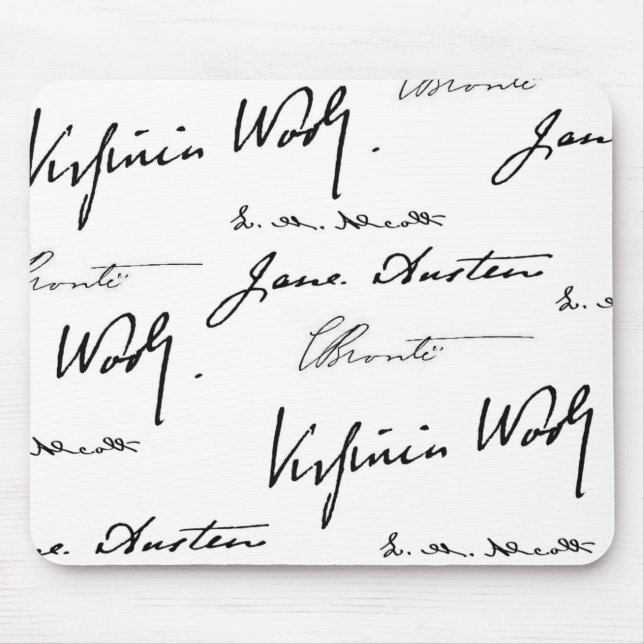 CBrontë
Virginia Woolf.
Jan
L. M. Alcott
Brontë
Jane Austen
L. M.
Woolf.
CBrontë
Virginia Woolf
M. Alcott
ne Austen
L. M. Alcott